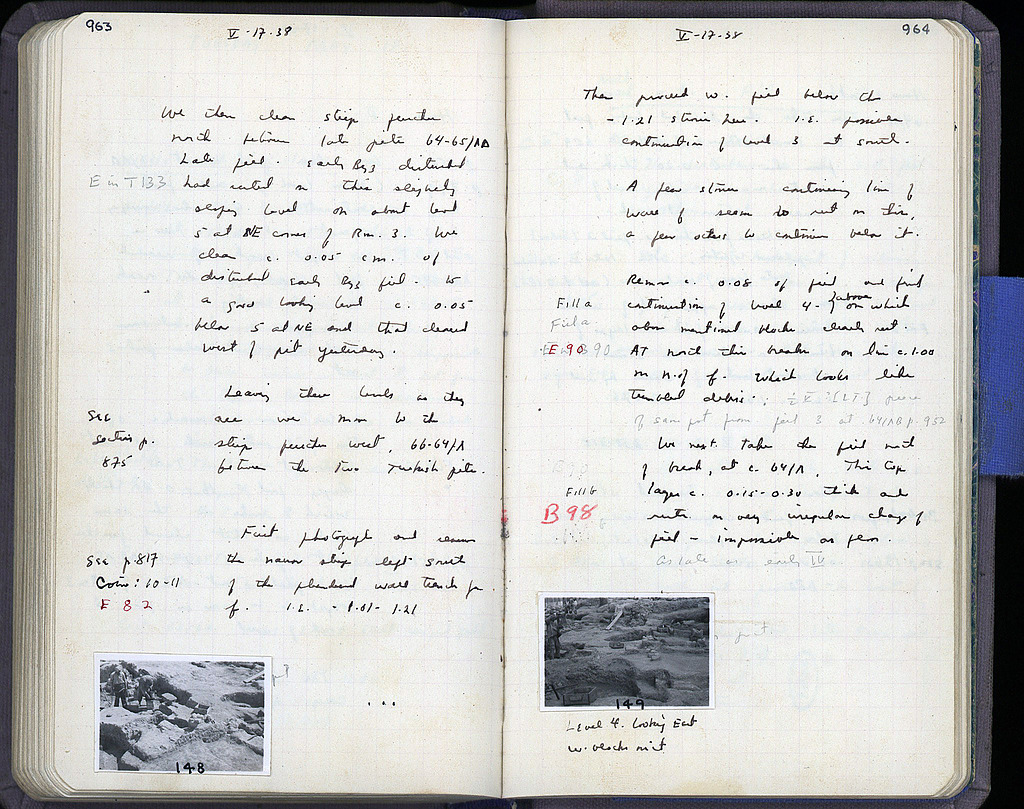 963
V-17-38
We then clean strip further
north between late pits 64-65/ΛΔ
Late fill. Early Byz disturbed
E in T133
had rested on this
sloping level on about level
5 at NE corner of Rm. 3. We
clean c. 0.05 cm. of
disturbed early Byz fill. to
a good looking level c. 0.05
below 5 at NE and that cleared
west of pit yesterday.
Leaving these levels as they
are we move to the
strip further west, 66-64/Λ
between the two Turkish pits.
See
section p.
875
First photograph and remove
the narrow strip left south
of the plundered wall trench for
f. I.E. -1.01- 1.21
See p. 817
Coins: 10-11
E 82
148
964
V-17-38
Then proceed w. fill below the
-1.21 stereo line. I.E. possible
continuation of level 3 at south.
A few stones continuing line of
wall f seem to rest on this,
a few others to continue below it.
Remove c. 0.08 of fill and find
continuation of level 4- on which
above
above mentioned blocks clearly rest.
Fill a
Fill a
E 90
B 90
AT north this breaks on line c. 1.00
m N. of f. Which looks like
tumbled debris.
piece
of same pot from fill 3 at 64/ΛB p. 952
We next take the fill north
of break, at c. 64/Λ. This top
layer c. 0.15-0.30 thick and
rests on very irregular clay of
fill - impossible as floor.
as late as early IV
Fill b
B 98
149
Level 4. Looking East
w. blocks in it